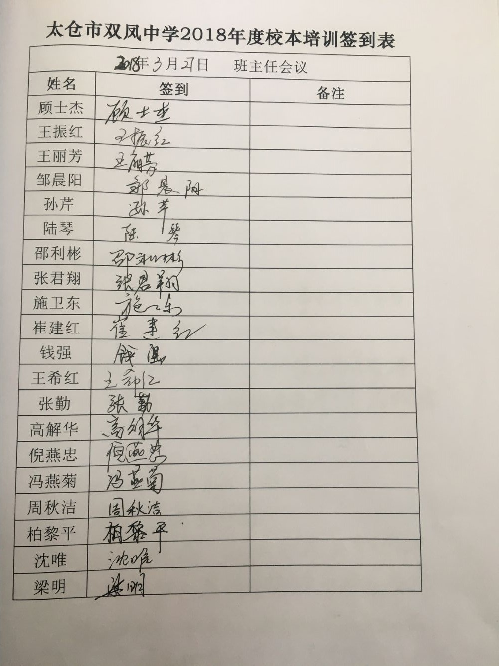 太仓市双凤中学2018年度校本培训签到表
2018年3月27日 班主任会议
姓名 签到 备注
顾士杰 顾士杰
王振红 王振红
王丽芳 王丽芳
邹晨阳 邹晨阳
孙芹 孙芹
陆琴 陆琴
邵利彬 邵利彬
张君翔 张君翔
施卫东 施卫东
崔建红 崔建红
钱强 钱强
王希红 王希红
张勤 张勤
高解华 高解华
倪燕忠 倪燕忠
冯燕菊 冯燕菊
周秋洁 周秋洁
柏黎平 柏黎平
沈唯 沈唯
梁明 梁明